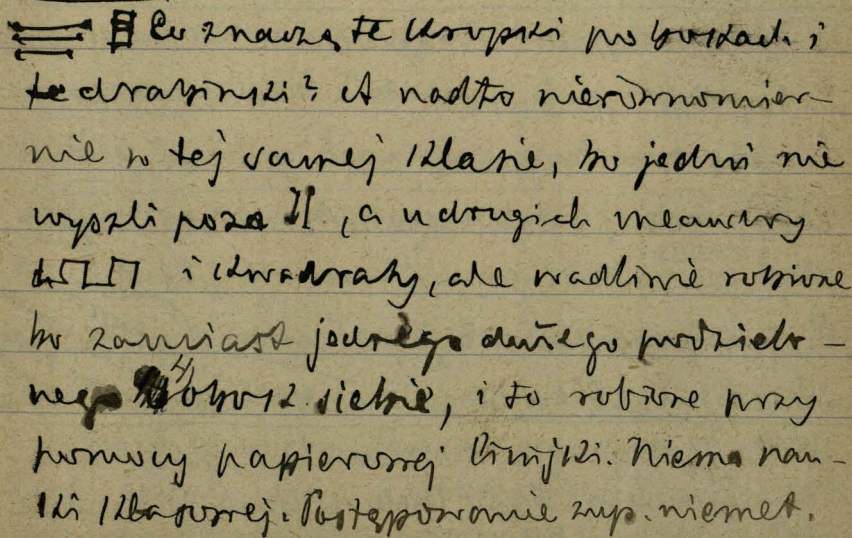 Co znaczą te kropki po bokach i
te drabinki? A nadto nierównomier-
nie w tej samej klasie, bo jedni nie
wyszli poza II, a u drugich meandry
i kwadraty, ale wadliwie robione
bo zamiast jednego dużego podzielo-
nego 4 obok siebie, i to robione przy
pomocy papierowej linijki. Niema nau-
ki klasowej. Postępowanie zup. niemet.